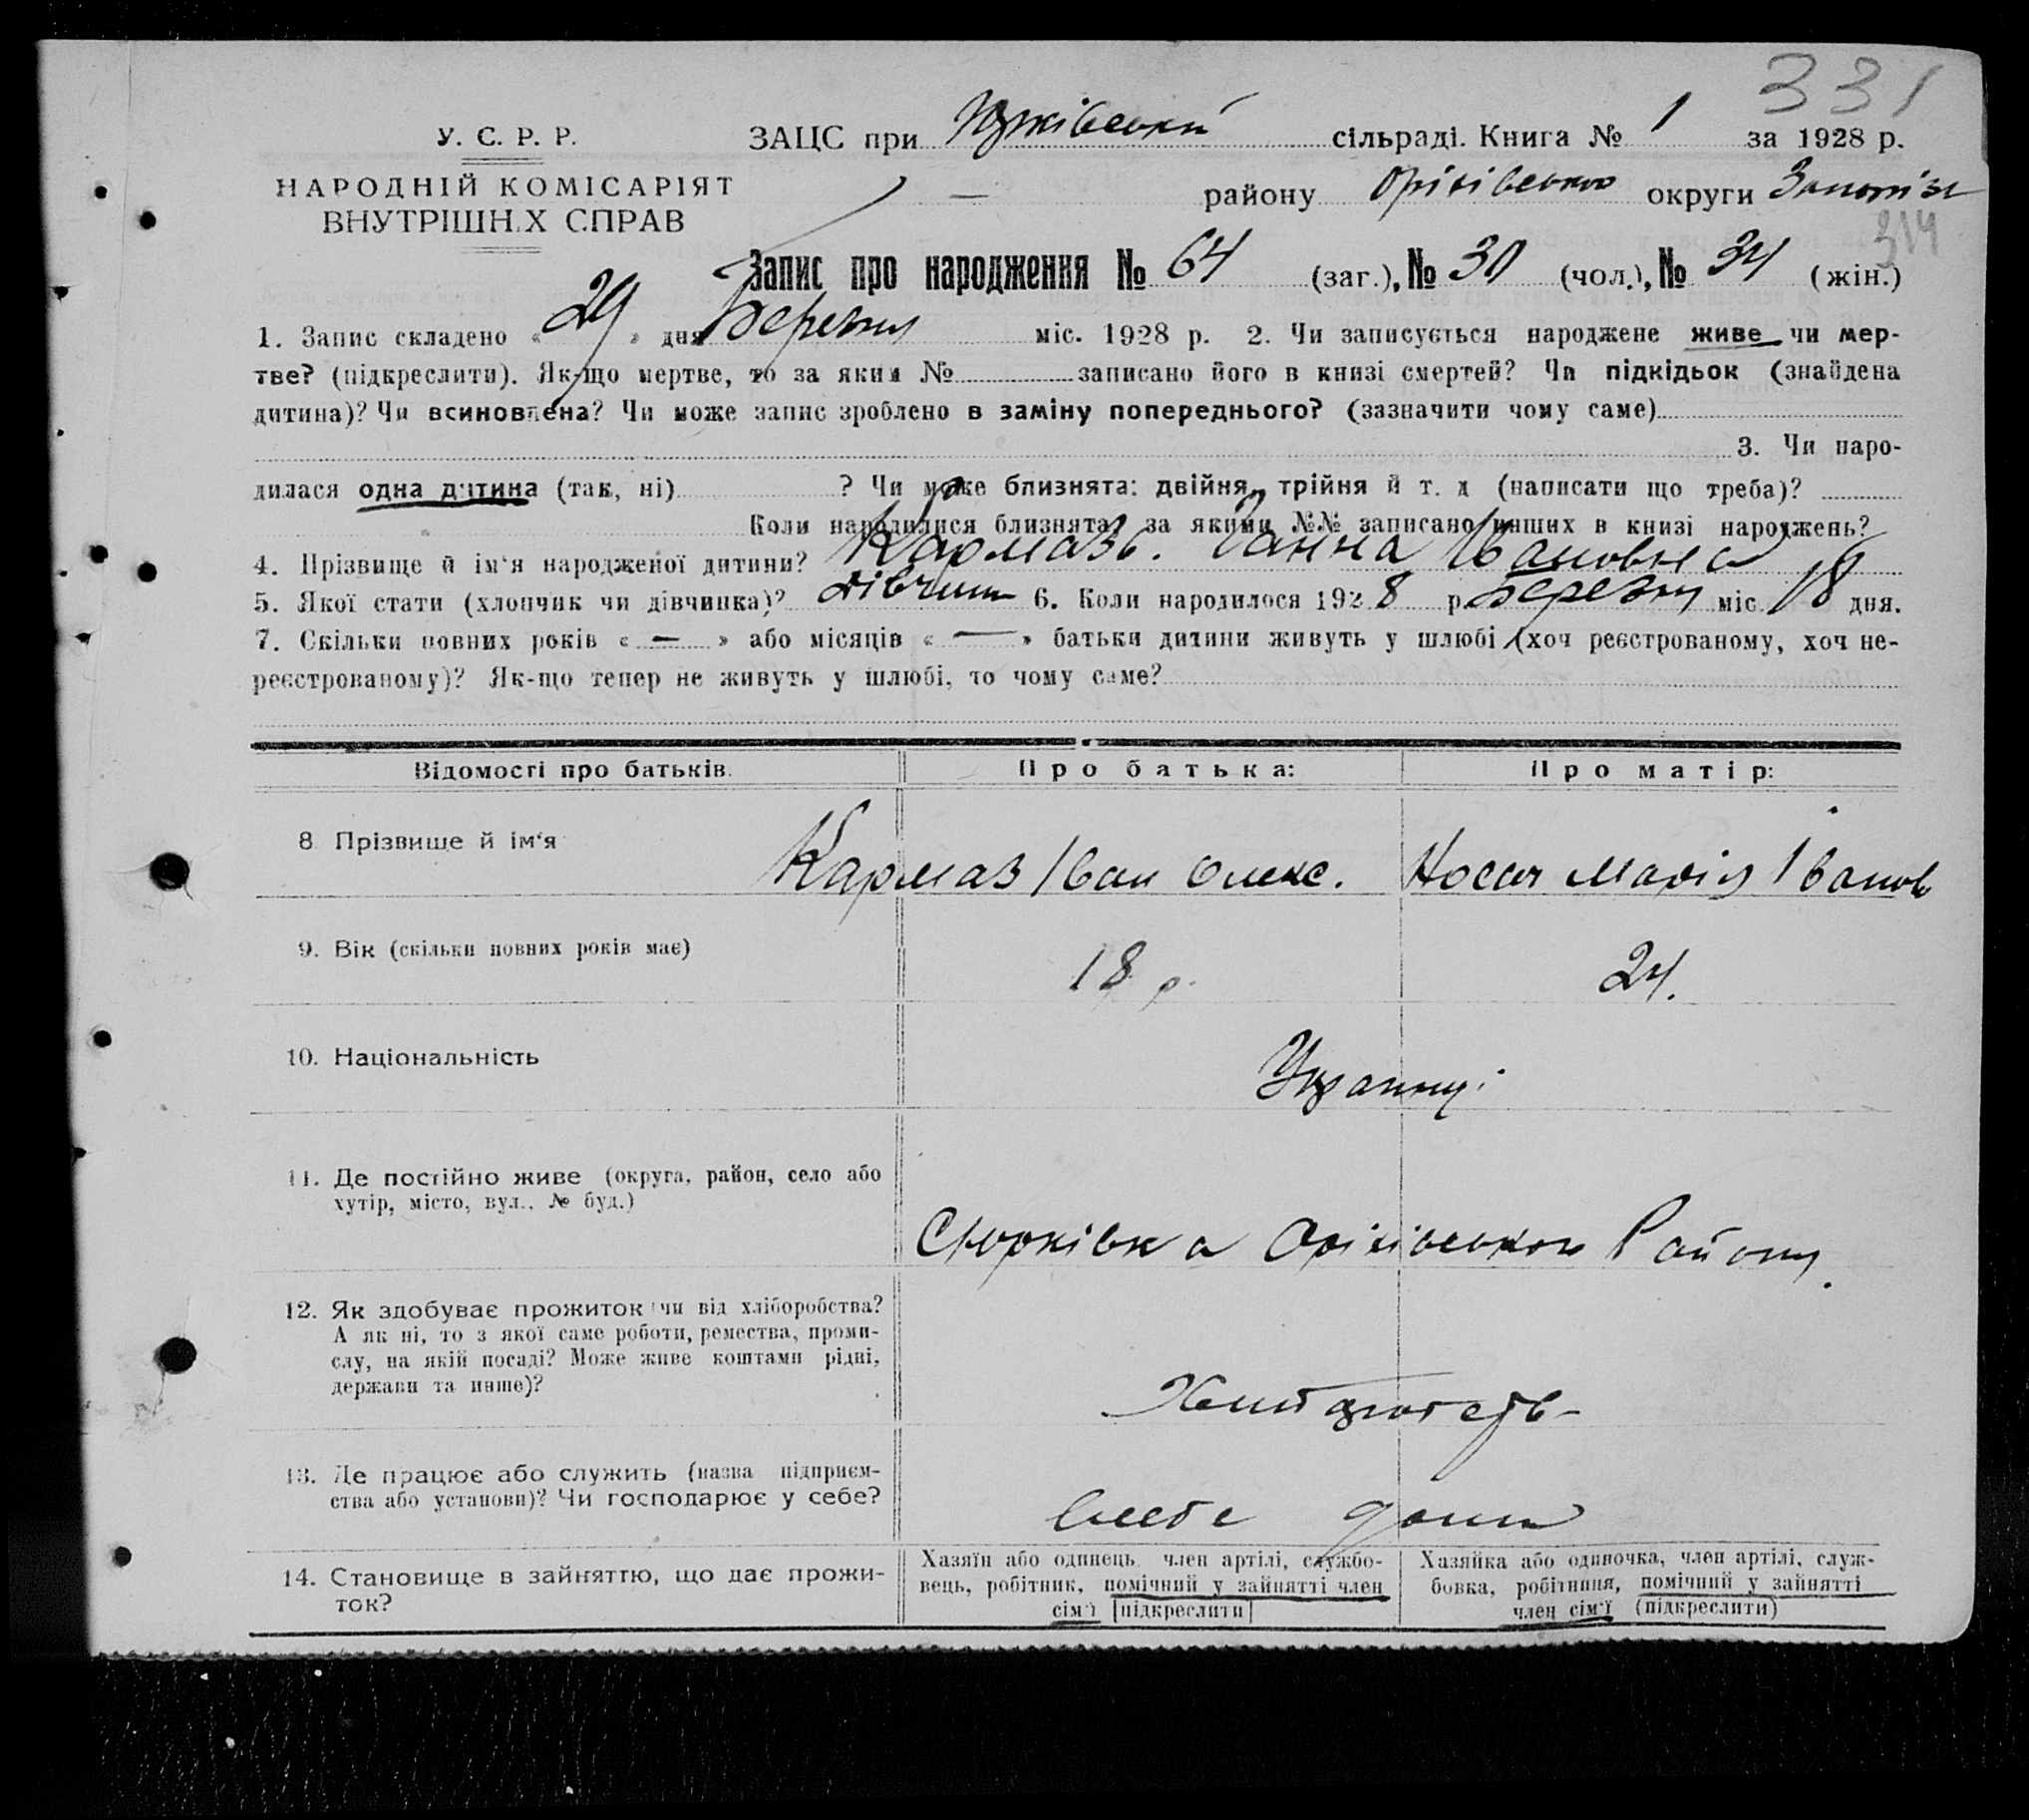 331
У. С. Р. Р. ЗАЦС при Юрківській сільраді. Книга № 1 за 1928 р.
НАРОДНІЙ КОМІСАРІЯТ
ВНУТРІШН.Х СПРАВ
— району Оріхівського округи Запоріж
314
Запис про народження № 64 (заг.), № 30 (чол.), № 34 (жін.)
1. Запис складено « 29 » дня Березня міс. 1928 р. 2. Чи записується народжене живе чи мер-
тве? (підкреслити). Як-що мертве, то за яким № записано його в книзі смертей? Чи підкідьок (знайдена
дитина)? Чи всиновлена? Чи може запис зроблено в заміну попереднього? (зазначити чому саме)
3. Чи наро-
дилася одна дитина (так, ні) ? Чи може близнята: двійня, трійня й т. д (написати що треба)?
Коли народилися близнята, за якими №№ записано инших в книзі народжень?
4. Прізвище й ім'я народженої дитини? Кармазь. Ганна Ивановна
5. Якої стати (хлопчик чи дівчинка)? дівчин 6. Коли народилося 1928 р. Березня міс. 18 дня.
7. Скільки повних років « — » або місяців « — » батьки дитини живуть у шлюбі (хоч реєстрованому, хоч не-
реєстрованому)? Як-що тепер не живуть у шлюбі, то чому саме?
Відомості про батьків. Про батька: Про матір:
8 Прізвище й ім'я Кармаз Іван Олекс. Носач Марія Іванов
9. Вік (скільки повних років має) 18 р. 24.
10. Національність Українці
11. Де постійно живе (округа, район, село або
хутір, місто, вул., № буд.)
Юрківка Оріхівського Району.
12. Як здобуває прожиток чи від хліборобства?
А як ні, то з якої саме роботи, ремества, проми-
слу, на якій посаді? Може живе коштами рідні,
держави та инше)?
13. Де працює або служить (назва підприєм-
ства або установи)? Чи господарює у себе?
дома
14. Становище в зайняттю, що дає прожи-
ток?
Хазяїн або одинець член артілі, службо-
вець, робітник, помічний у зайнятті член
сім'ї [підкреслити]
Хазяйка або одиночка, член артілі, служ-
бовка, робітниця, помічний у зайнятті
член сім'ї (підкреслити)